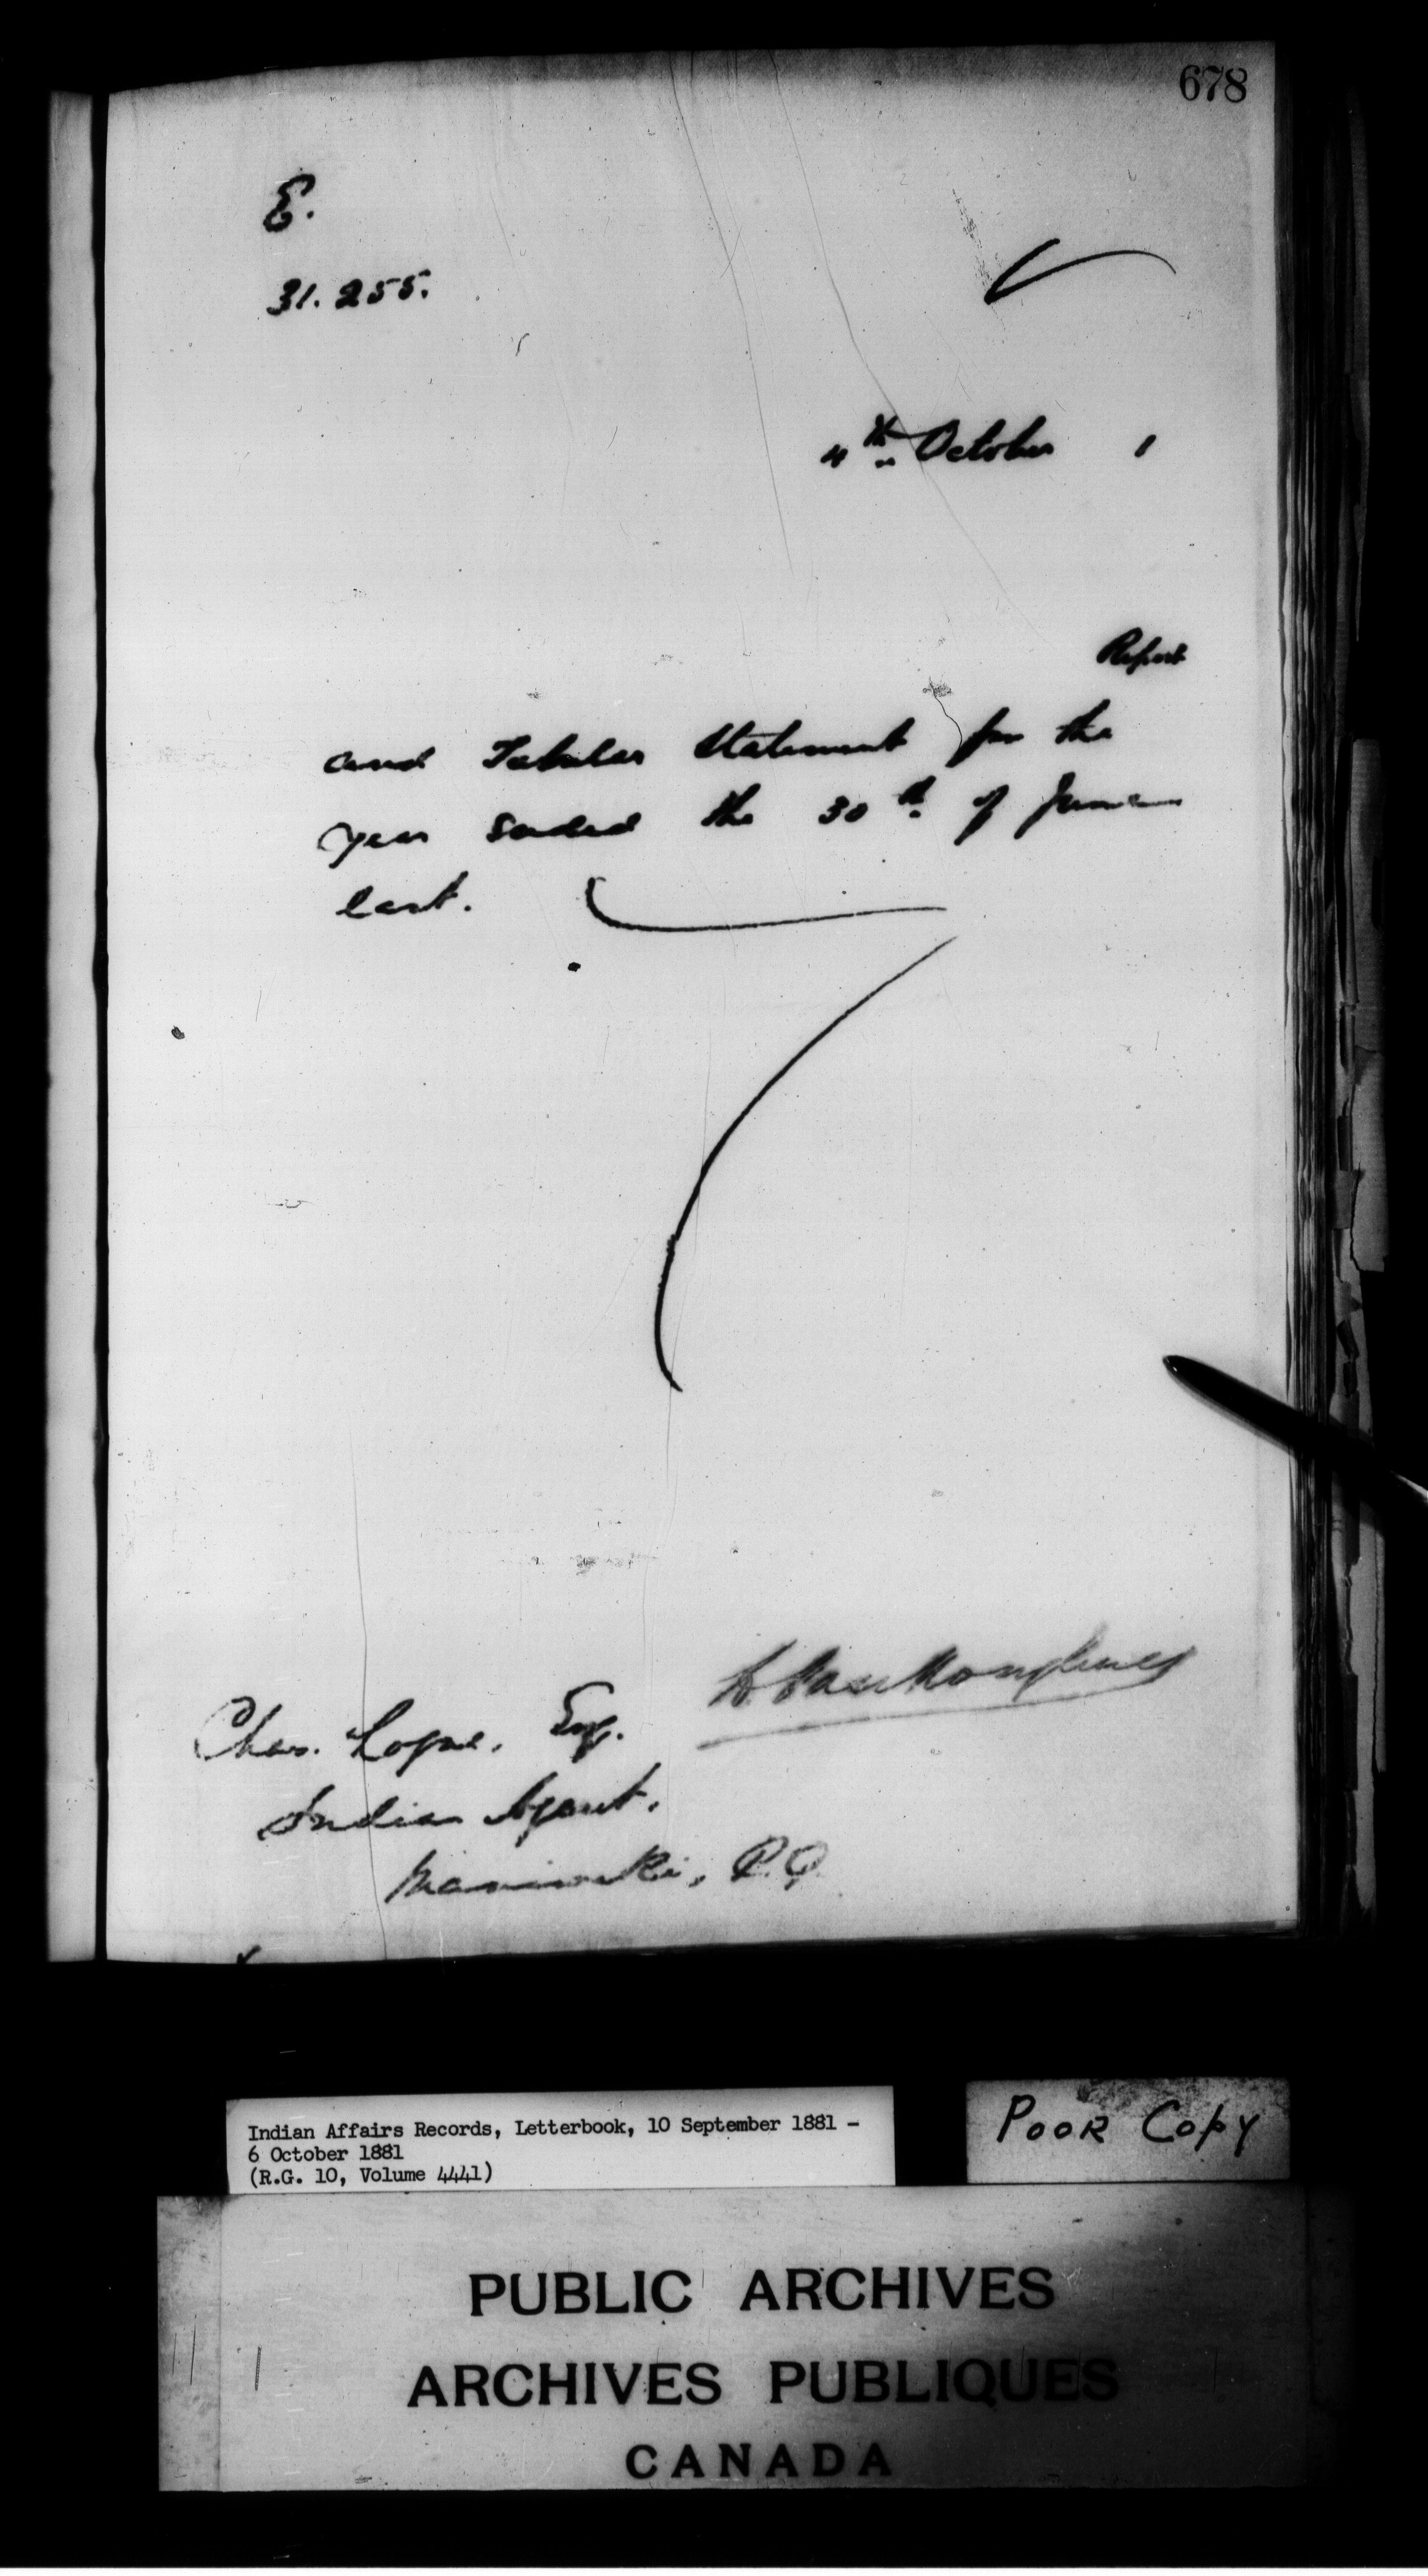 678
E.
31.255.
4th October 1
Report
and Tabular Statement for the
year ended the 30th of June
last.
Chas. Logue, Esq.
Indian Agent,
Maniwaki, P.Q.
Indian Affairs Records, Letterbook, 10 September 1881 -
6 October 1881
(R.G. 10, Volume 4441)
POOR COPY
PUBLIC ARCHIVES
ARCHIVES PUBLIQUES
CANADA